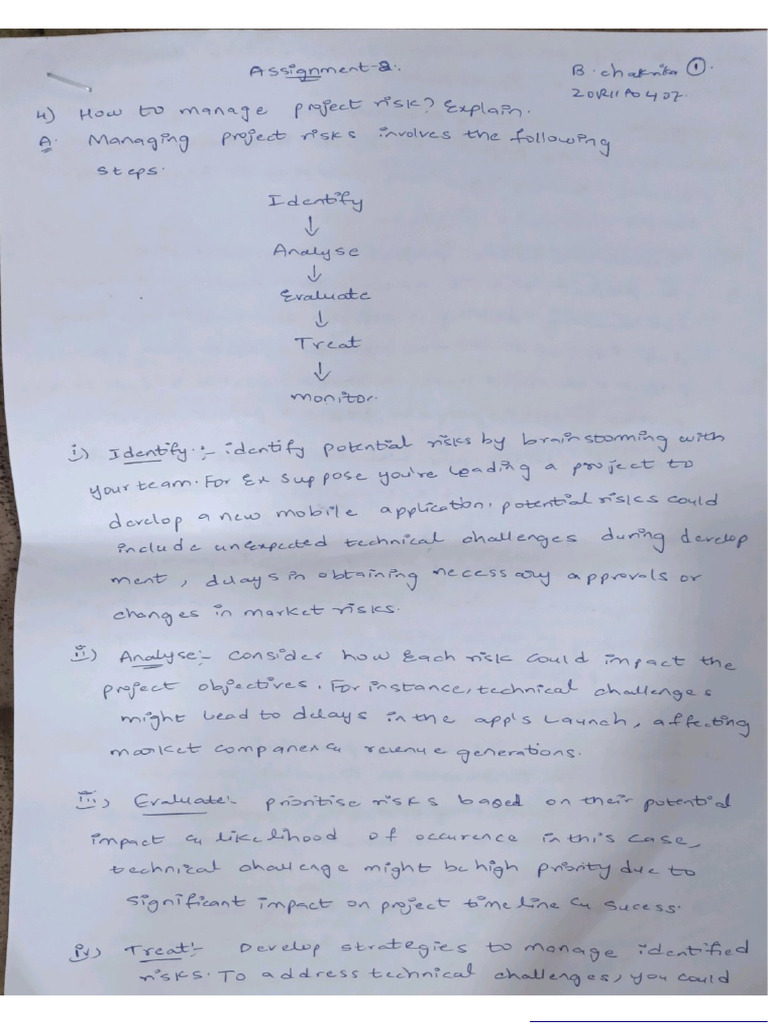 Assignment-2.
B. chakrika ①.
20R11A0407
4) How to manage project risk? Explain.
A. Managing project risks involves the following
steps.
Identify
↓
Analyse
↓
Evaluate
↓
Treat
↓
monitor.
i) Identify :- identify potential risks by brainstorming with
your team. For Ex suppose you're leading a project to
develop a new mobile application. potential risks could
include unexpected technical challenges during develop
ment, delays in obtaining necessary approvals or
changes in market risks.
ii) Analyse:- consider how each risk could impact the
project objectives. For instance, technical challenges
might lead to delays in the app's launch, affecting
market revenue generations.
iii) Evaluate:- prioritise risks based on their potential
impact & likelihood of occurence in this case,
technical challenge might be high priority due to
significant impact on project timeline & sucess.
iv) Treat:- Develop strategies to manage identified
risks. To address technical challenges, you could